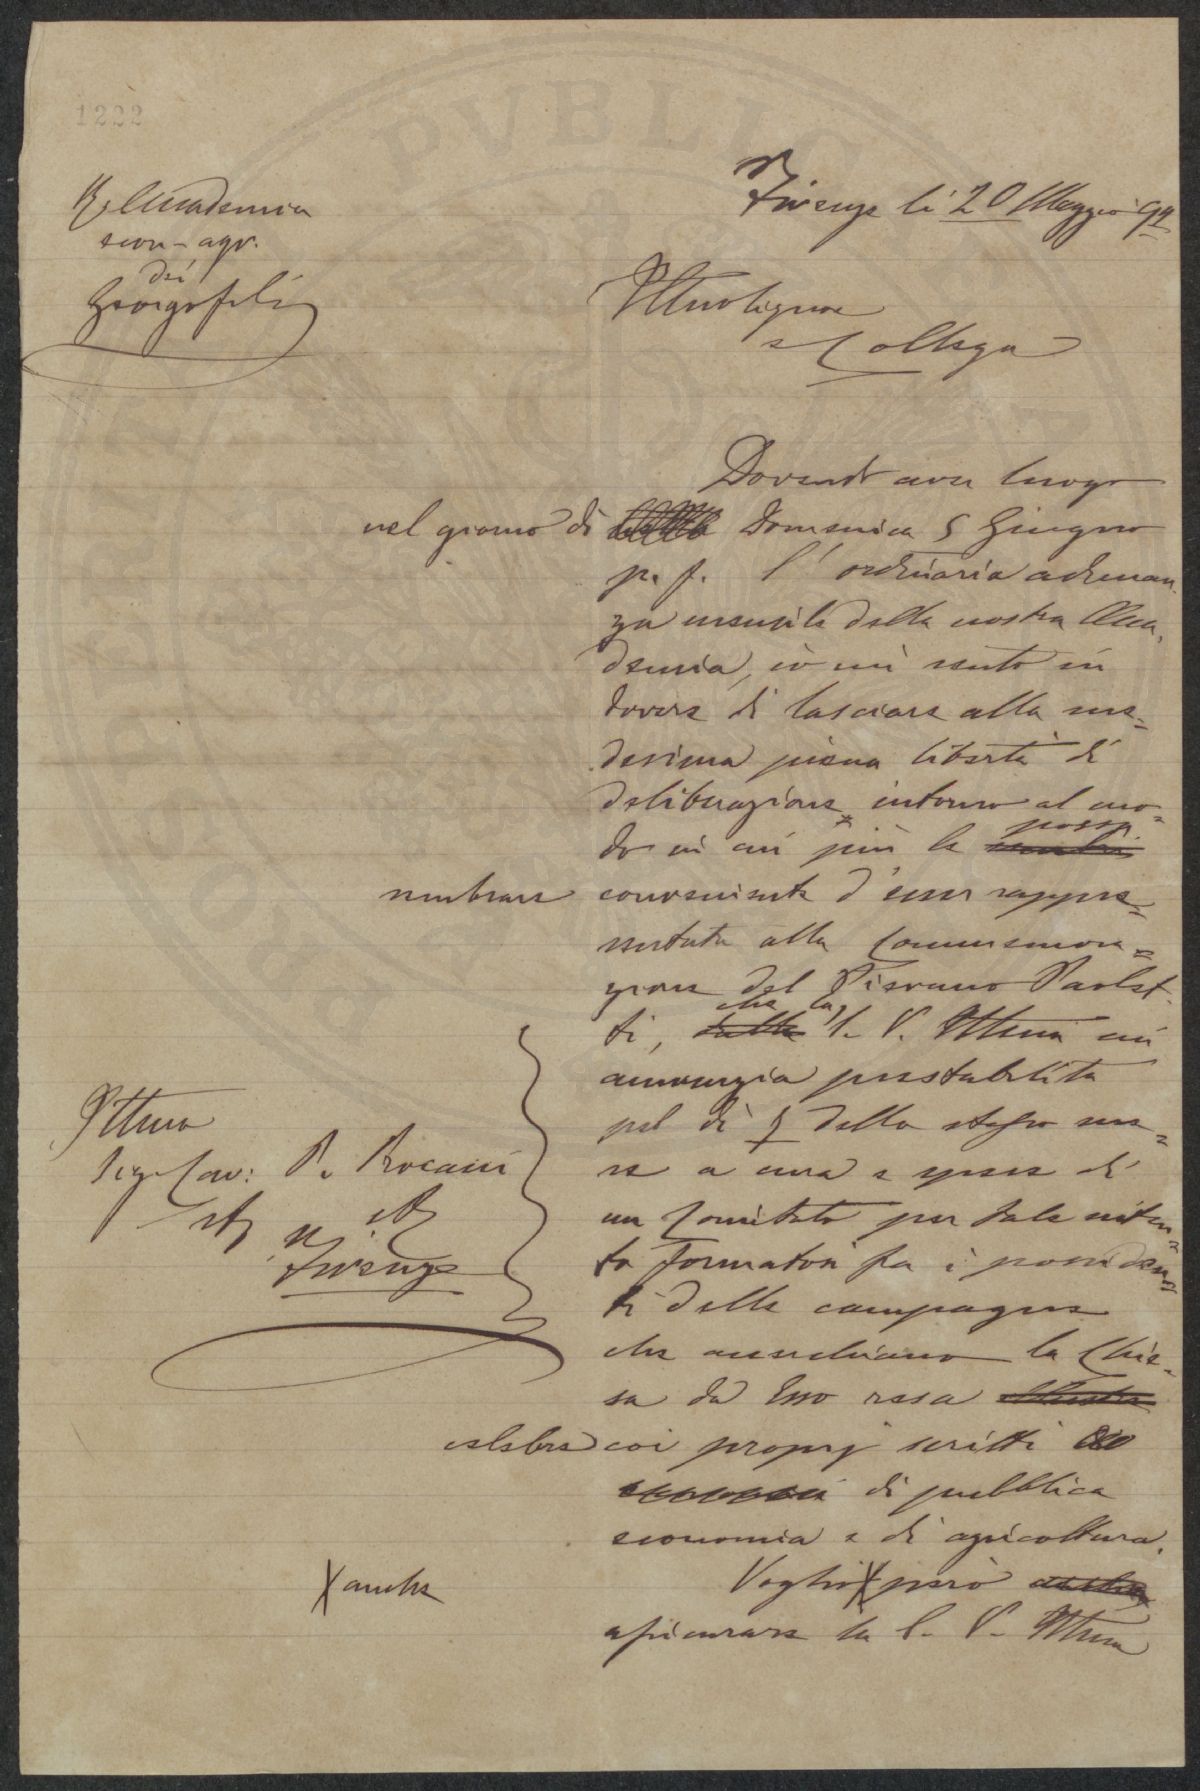 1222
R. Accademia
econ-agr.
dei
Georgofili
Firenze li 20 Maggio 92
Ill.mo Signore
e Collega
Dovendo aver luogo
nel giorno di Domenica 5 Giugno
p. f. l'ordinaria adunan-
za mensile della nostra Acca-
demia, io mi sento in
dovere di lasciare alla me-
desima piena libertà di
deliberazione intorno al mo-
do in cui più le possa
sembrare conveniente d'esser rappre-
sentata alla Commemora-
zione del Pievano Paolet-
ti, che la S. V. Ill.ma mi
annunzia prestabilita
pel dì 9 dello stesso me-
se a cura e spese di
un Comitato per tale inten-
to formatosi fra i possiden-
ti delle campagne
che accerchiano la Chie-
sa da Esso resa
celebre coi proprj scritti
di pubblica
economia e di agricoltura.
Voglio X però
X anche
assicurare la S. V. Ill.ma
Ill.mo
Sig. Cav: P.
etc etc
Firenze
PVBLIC